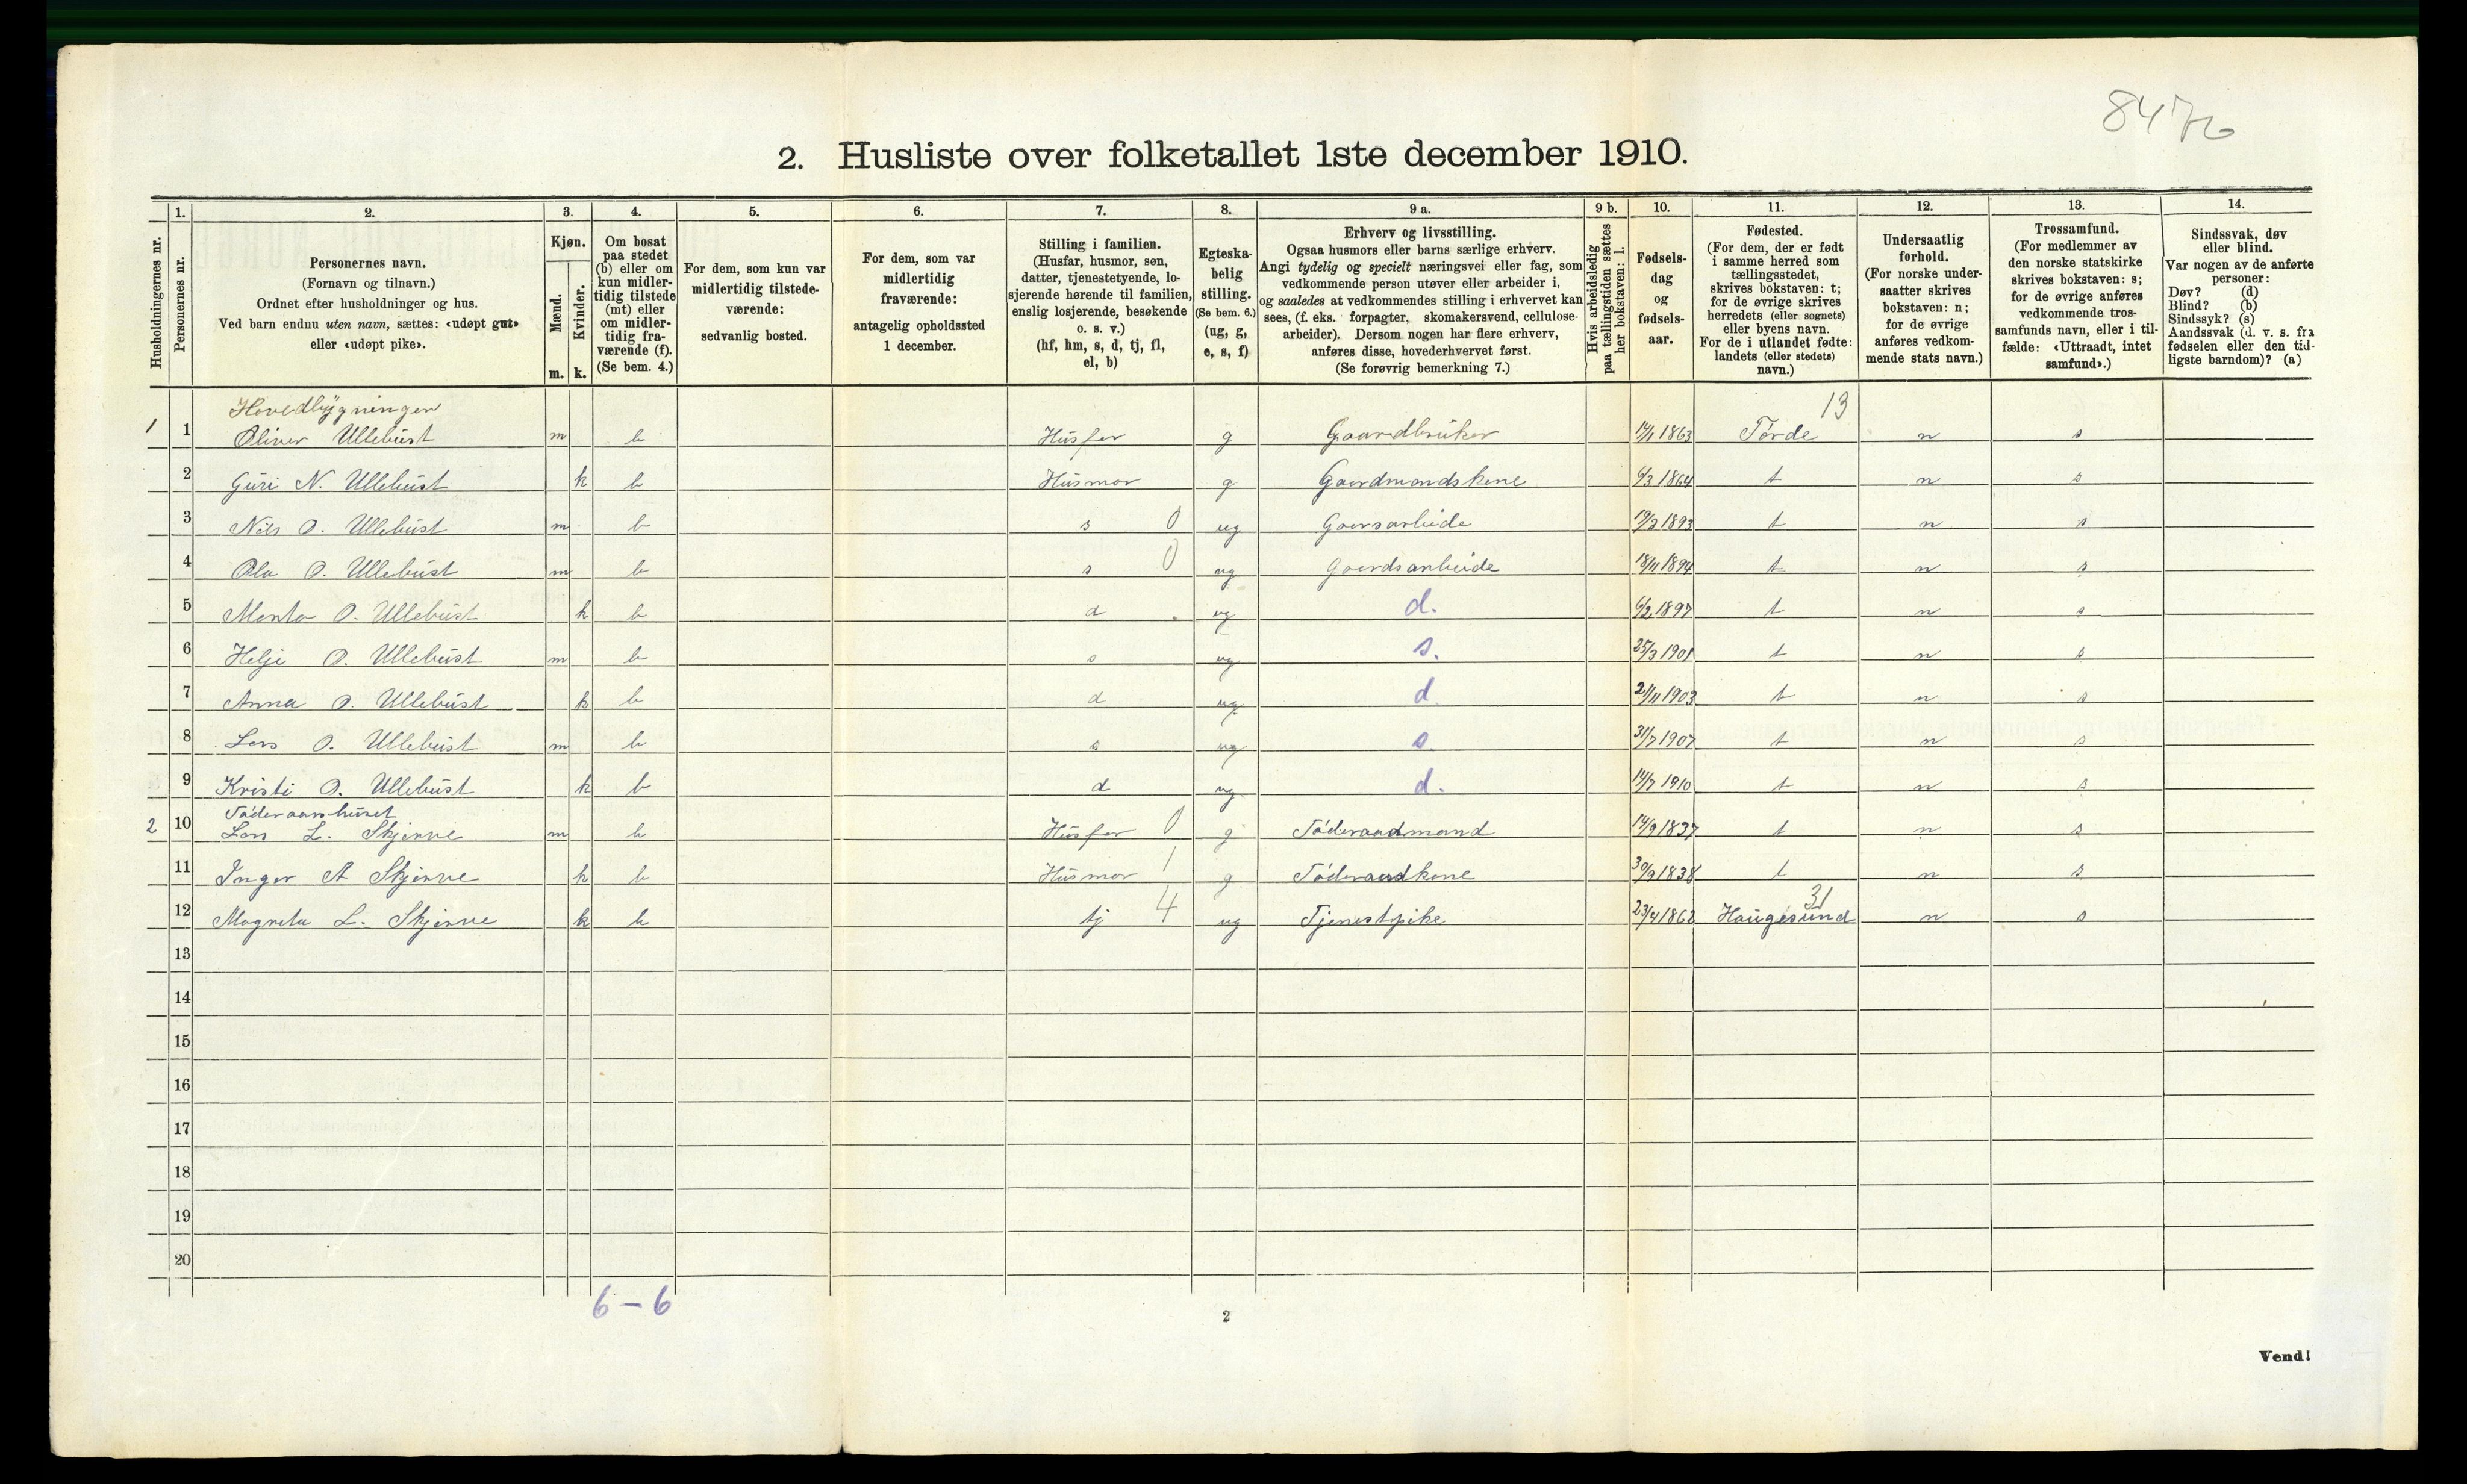 8470
2. Husliste over folketallet 1ste december 1910.
Husholdningernes nr.
1.
Personernes nr.
2.
Personernes navn.
(Fornavn og tilnavn.)
Ordnet efter husholdninger og hus.
Ved barn endnu uten navn, sættes: «udøpt gut»
eller «udøpt pike».
3.
Kjøn.
Mænd.
Kvinder.
m. k.
4.
Om bosat
paa stedet
(b) eller om
kun midler-
tidig tilstede
(mt) eller
om midler-
tidig fra-
værende (f).
(Se bem. 4.)
5.
For dem, som kun var
midlertidig tilstede-
værende:
sedvanlig bosted.
6.
For dem, som var
midlertidig
fraværende:
antagelig opholdssted
1 december.
7.
Stilling i familien.
(Husfar, husmor, søn,
datter, tjenestetyende, lo-
sjerende hørende til familien,
enslig losjerende, besøkende
o. s. v.)
(hf, hm, s, d, tj, fl,
el, b)
8.
Egteska-
belig
stilling.
(Se bem. 6.)
(ug, g,
e, s, f)
9 a.
Erhverv og livsstilling.
Ogsaa husmors eller barns særlige erhverv.
Angi tydelig og specielt næringsvei eller fag, som
vedkommende person utøver eller arbeider i,
og saaledes at vedkommendes stilling i erhvervet kan
sees, (f. eks. forpagter, skomakersvend, cellulose-
arbeider). Dersom nogen har flere erhverv,
anføres disse, hovederhvervet først.
(Se forøvrig bemerkning 7.)
9 b.
Hvis arbeidsledig
paa tællingstiden sættes
her bokstaven: l.
10.
Fødsels-
dag
og
fødsels-
aar.
11.
Fødested.
(For dem, der er født
i samme herred som
tællingsstedet,
skrives bokstaven: t;
for de øvrige skrives
herredets (eller sognets)
eller byens navn.
For de i utlandet fødte:
landets (eller stedets)
navn.)
12.
Undersaatlig
forhold.
(For norske under-
saatter skrives
bokstaven: n;
for de øvrige
anføres vedkom-
mende stats navn.)
13.
Trossamfund.
(For medlemmer av
den norske statskirke
skrives bokstaven: s;
for de øvrige anføres
vedkommende tros-
samfunds navn, eller i til-
fælde: «Uttraadt, intet
samfund».)
14.
Sindssvak, døv
eller blind.
Var nogen av de anførte
personer:
Døv? (d)
Blind? (b)
Sindssyk? (s)
Aandssvak (d. v. s. fra
fødselen eller den tid-
ligste barndom)? (a)
Hovedbygningen 13
1 1 Oliver Ullebust m b Husfar g Gaardbruker 14/1 1863 Førde n s
2 Guri N. Ullebust k b Husmor g Gaardmandskone 6/3 1864 t n s
3 Nils O. Ullebust m b s 0 ug Gaarsarbeide 19/3 1893 t n s
4 Ola O. Ullebust m b s 0 ug Gaardsarbeide 18/11 1894 t n s
5 O. Ullebust k b d ug d. 6/2 1897 t n s
6 Helje O. Ullebust m b s ug s. 25/3 1901 t n s
7 Anna O. Ullebust k b d ug d. 2/11 1903 t n s
8 Lars O. Ullebust m b s ug s. 31/7 1907 t n s
9 Kristi O. Ullebust k b d ug d. 14/7 1910 t n s
Føderaashuset
2 10 Lars L. Skjerve m b Husfar 0 g Føderaadmand 14/9 1837 t n s
11 Inger A Skjerve k b Husmor 1 g Føderaadkone 30/9 1838 t n s
12 Magreta L. Skjerve k b tj 4 ug Tjenestpike 23/4 1862 Haugesund 31 n s
13
14
15
16
17
18
19
20
6 – 6
2
Vend!